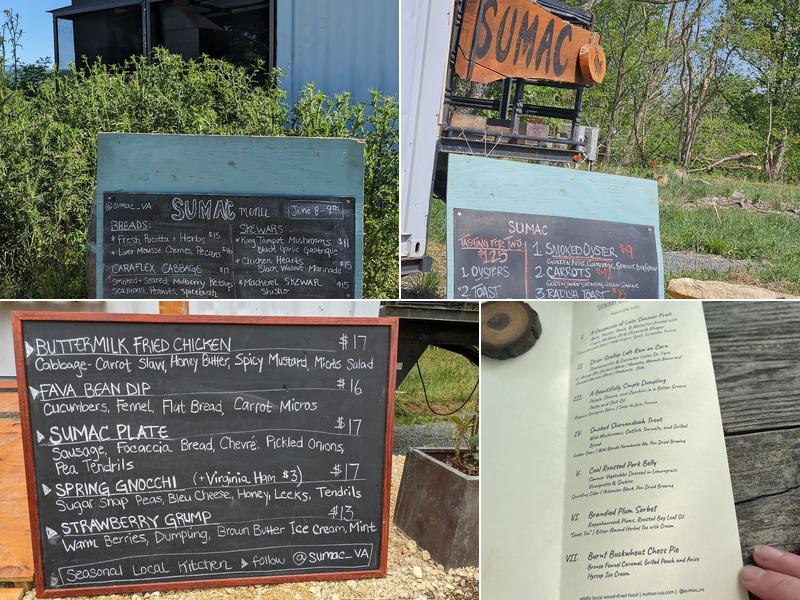 @sumac_VA SUMAC menu June 8-9th
BREADS:
+ Fresh Ricotta + Herbs $15
+ Liver Mousse, Cherries, Pecans
CARAFLEX CABBAGE $17
Smoked + Seared, Mulberry Ketchup
Scallions, Peanuts, Spicebush
SKEWERS:
King Trumpet Mushrooms $11
Black Garlic Gastrique
Chicken Hearts
Black Walnut Marinade
Mackerel SKEWER $15
Shishito
SUMAC
SUMAC
TASTING FOR TWO
$125
1 OYSTERS
2 TOAST
1 SMOKED OYSTER $9
2 CARROTS
3 RADISH TOAST
BUTTERMILK FRIED CHICKEN $17
Cabbage-Carrot Slaw, Honey Butter, Spicy Mustard, Micros Salad
FAVA BEAN DIP $16
Cucumbers, Fennel, Flat Bread, Carrot Micros
SUMAC PLATE $17
Sausage, Focaccia Bread, Chevré, Pickled Onions,
Pea Tendrils
SPRING GNOCCHI (+Virginia Ham $3) $17
Sugar Snap Peas, Bleu Cheese, Honey, Leeks, Tendrils
STRAWBERRY GRUMP $13
Warm Berries, Dumpling, Brown Butter Ice Cream, Mint
Seasonal Local Kitchen follow @sumac_VA
I. A Diagnosis of Late Summer Fruit
II. Dear Scallop Left Raw on Corn
III. A Beautifully Simple Dumpling
IV. Smoked Shenandoah Trout
Wild Mushrooms, Catfish Tomato, and Grilled
Bread
V. Coal Roasted Pork Belly
Summer Vegetables Dressed in Lemongrass
Vinaigrette &
VI. Brandied Plum Sorbet
Rappahannock Plums, Roasted Bay Leaf Oil
"Sweet Tea" | Bitter Almond Herbal Tea with Cream
VII. Burnt Buckwheat Chess Pie
Bronze Fennel Caramel, Grilled Peach and Anise
Hyssop Ice Cream
wildly local wood-fired food | sumac-va.com | @sumac_va